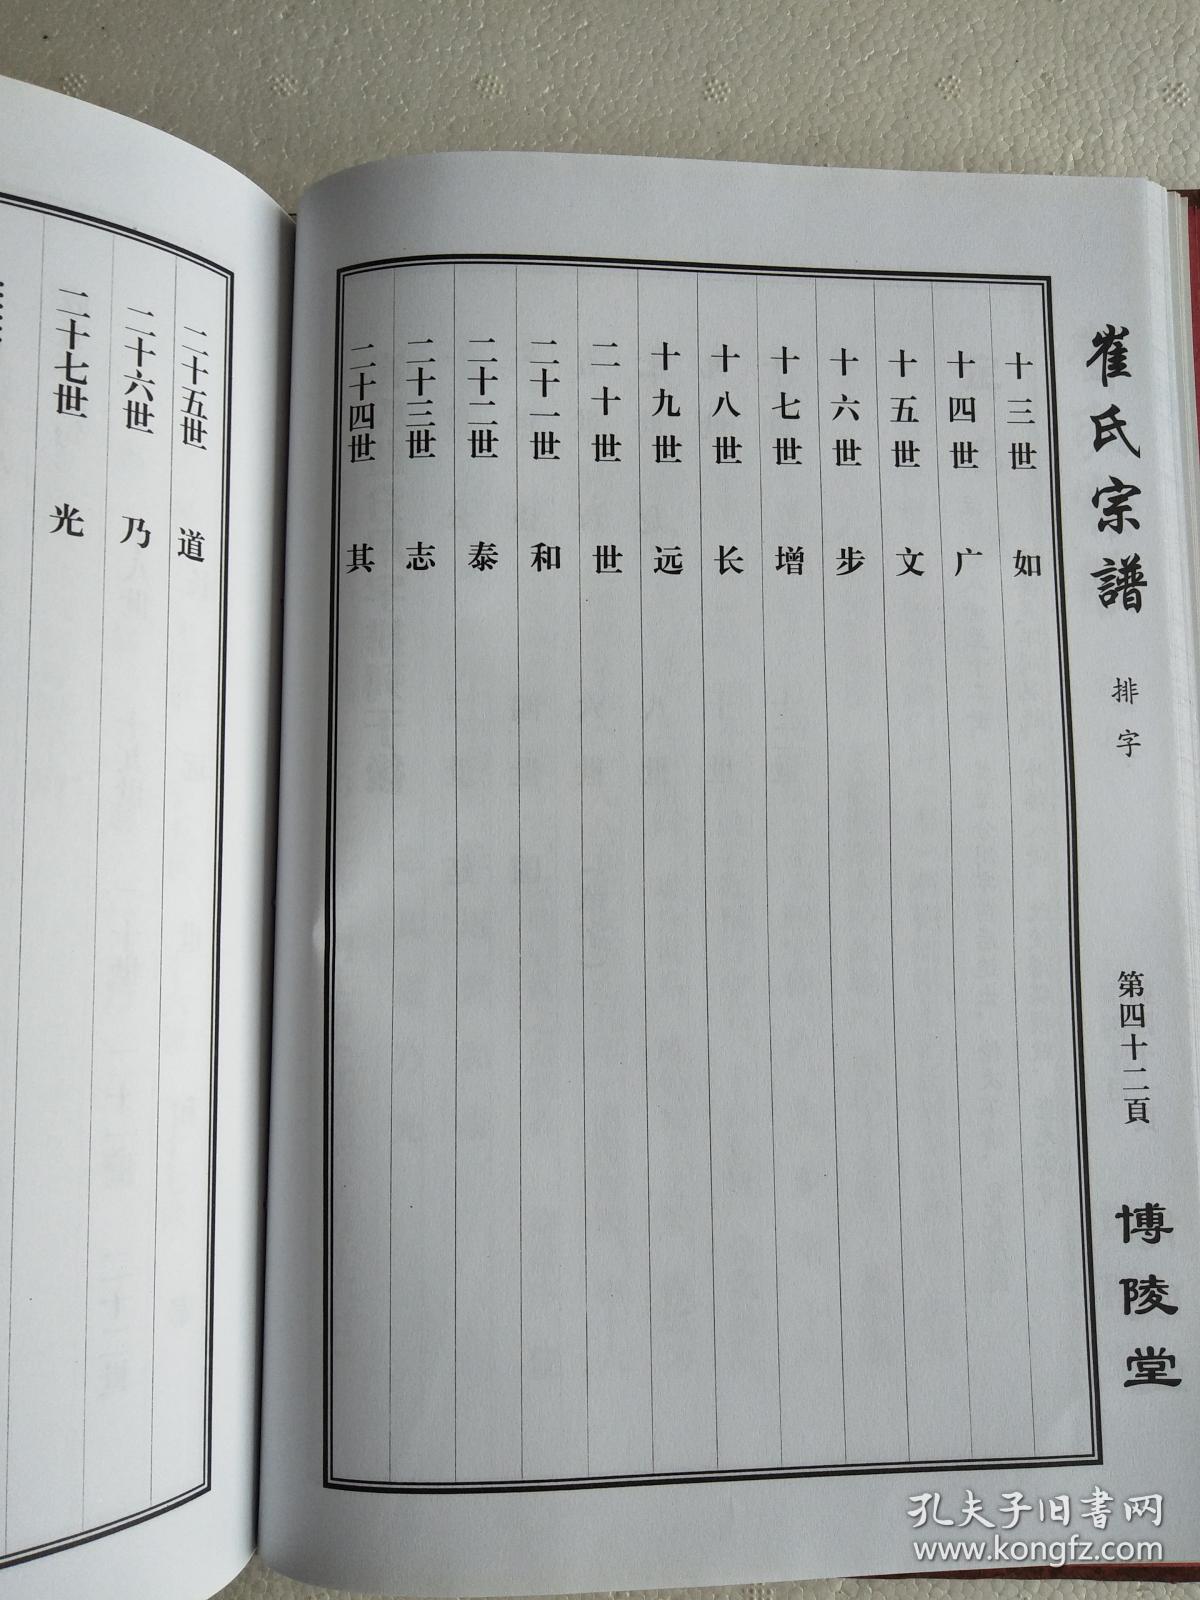 崔氏宗譜
排字
第四十二頁
博陵堂
十三世 如
十四世 广
十五世 文
十六世 步
十七世 增
十八世 长
十九世 远
二十世 世
二十一世 和
二十二世 泰
二十三世 志
二十四世 其
二十五世 道
二十六世 乃
二十七世 光
孔夫子旧书网
www.kongfz.com